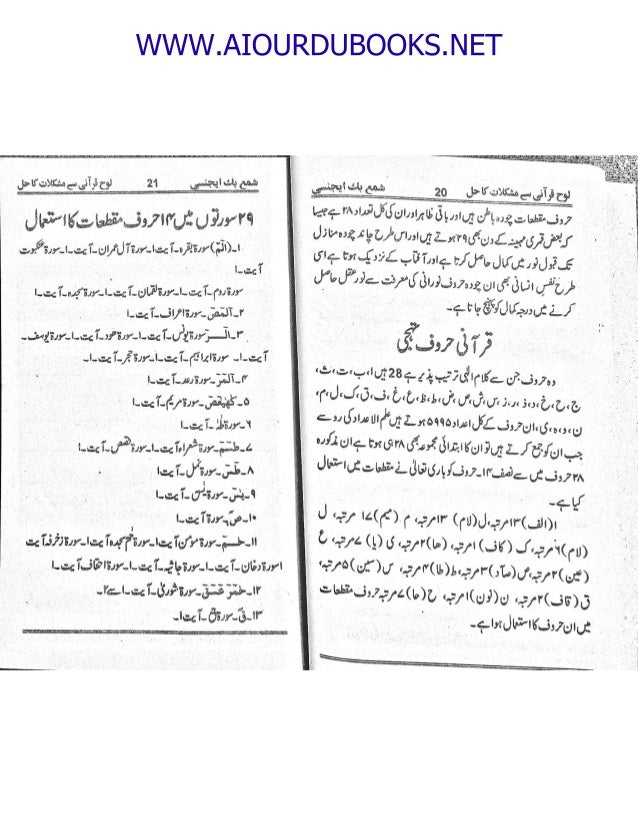 WWW.AIOURDUBOOKS.NET
لوح قرآنی سے مشکلات کا حل 20 شمع بک ایجنسی
حروف مقطعات چودہ باطن ہیں اور باقی ظاہر اور ان کی کل تعداد ۲۸ ہے جیسا
کہ بعض قمری مہینہ کے دن بھی ۲۹ ہوتے ہیں اور اس طرح چاند چودہ منازل
تک قبول نور میں کمال حاصل کرتا ہے اور آفتاب کے نزدیک ہوتا ہے اسی
طرح نفس انسانی بھی ان چودہ حروف نورانی کی معرفت سے نور عقل حاصل
کرنے میں درجہ کمال کو پہنچ جاتا ہے۔
قرآنی حروف تہجی
وہ حروف جن سے کلام الٰہی ترتیب پذیر ہے 28 ہیں ا، ب، ت، ث،
ج، ح، خ، د، ذ، ر، ز، س، ش، ص، ض، ط، ظ، ع، غ، ف، ق، ک، ل، م،
ن، و، ہ، ی، ان حروف کے کل اعداد ۵۹۹۵ ہوتے ہیں علم الاعداد کی رو سے
جب ان کو جمع کرتے ہیں تو ان کا ابتدائی مجموعہ بھی ۲۸ ہی ہوتا ہے ان مذکورہ
۲۸ حروف میں سے نصف ۱۴۔ حروف کو باری تعالیٰ نے مقطعات میں استعمال
کیا ہے۔
ا (الف) ۱۳ مرتبہ، ل (لام) ۱۳ مرتبہ، م (میم) ۱۷ مرتبہ، ل
(لام) ۶ مرتبہ، ک (کاف) ا مرتبہ، (ھا) ۲ مرتبہ، ی (یا) ۷ مرتبہ، ع
(عین) ۲ مرتبہ، ص (صاد) ۳ مرتبہ، ط (طا) ۴ مرتبہ، س (سین) ۵ مرتبہ،
ق (قاف) ۲ مرتبہ، ن (نون) ا مرتبہ، ح (حا) ۷ مرتبہ حروف مقطعات
میں ان حروف کا استعمال ہوا ہے۔
شمع بک ایجنسی 21 لوح قرآنی سے مشکلات کا حل
۲۹ سورتوں میں ۱۴ حروف مقطعات کا استعمال
۱۔ (الٓمّ) سورۃ بقرہ۔ آیت۔ا۔ سورۃ آل عمران۔ آیت۔ا۔ سورۃ عنکبوت
آیت۔ا
سورۃ روم۔ آیت۔ا۔ سورۃ لقمان۔ آیت۔ا۔ سورۃ سجدہ۔ آیت۔ا
۲۔ الٓمّصٓ۔ سورۃ اعراف۔ آیت۔ا
۳۔ الٓــرٰ سورۃ یونس۔ آیت۔ا۔ سورۃ ھود۔ آیت۔ا۔ سورۃ یوسف۔
آیت۔ا۔ سورۃ ابراہیم۔ آیت۔ا۔ سورۃ حجر۔ آیت۔ا۔
۴۔ الٓمّرٰ۔ سورۃ رعد۔ آیت۔ا
۵۔ کٓھٰیٰعٓصٓ۔ سورۃ مریم۔ آیت۔ا۔
۶۔ سورۃ طٰہٰ۔ آیت۔ا
۷۔ طٰسٓمّ۔ سورۃ شعراء آیت۔ا۔ سورۃ قصص۔ آیت۔ا۔
۸۔ طٰسٓ۔ سورۃ نمل۔ آیت ا
۹۔ یٰسٓ۔ سورۃ یٰس۔ آیت۔ا
۱۰۔ صٓ۔ سورۃ آیت۔ا
۱۱۔ حٰــمٓ۔ سورۃ مومن آیت ا۔ سورۃ حٰم سجدہ آیت ا۔ سورۃ زخرف آیت
ا سورۃ دخان۔ آیت۔ا۔ سورۃ جاثیہ۔ آیت۔ا۔ سورۃ احقاف آیت۔ا
۱۲۔ حٰمٓ عٓسٓقٓ۔ سورۃ شوریٰ۔ آیت۔ا سے ۲۔
۱۳۔ قٓ۔ سورۃ آیت۔ا۔